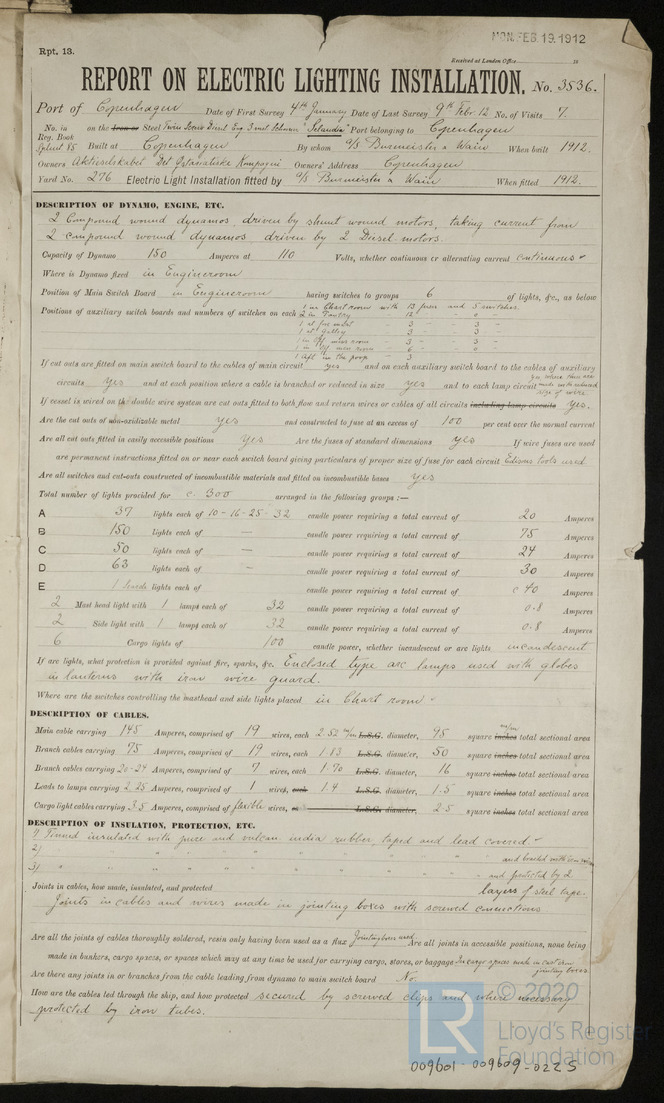 MON. FEB. 19. 1912
Rpt. 13.
Received at London Office 19
REPORT ON ELECTRIC LIGHTING INSTALLATION. No. 3536.
Port of Copenhagen Date of First Survey 4th January Date of Last Survey 9th Febr. 12 No. of Visits 7.
No. in Reg. Book on the Iron or Steel Twin Screw Diesel Eng. 3 mst. Schnr "Selandia" Port belonging to Copenhagen
Splmt 85 Built at Copenhagen By whom A/S Burmeister & Wain When built 1912.
Owners Aktieselskabet Det Østasiatiske Kompagni Owners' Address Copenhagen
Yard No. 276 Electric Light Installation fitted by A/S Burmeister & Wain When fitted 1912.
DESCRIPTION OF DYNAMO, ENGINE, ETC.
2 Compound wound dynamos driven by shunt wound motors, taking current from
2 compound wound dynamos driven by 2 Diesel motors.
Capacity of Dynamo 150 Amperes at 110 Volts, whether continuous or alternating current continuous
Where is Dynamo fixed in Engineroom
Position of Main Switch Board in Engineroom having switches to groups 6 of lights, &c., as below
Positions of auxiliary switch boards and numbers of switches on each 1 in Chart room with 13 fuses and 5 switches
2 in Pantry 12 - 0 -
1 at 3 - 3 -
1 at Galley 3 - 3 -
1 in Off. mess room 3 - 3 -
1 in mess room 6 - 0 -
1 Aft in the poop 3
If cut outs are fitted on main switch board to the cables of main circuit yes and on each auxiliary switch board to the cables of auxiliary
circuits yes and at each position where a cable is branched or reduced in size yes and to each lamp circuit made with reduced size of wire
If vessel is wired on the double wire system are cut outs fitted to both flow and return wires or cables of all circuits including lamp circuits yes.
Are the cut outs of non-oxidizable metal yes and constructed to fuse at an excess of 100 per cent over the normal current
Are all cut outs fitted in easily accessible positions yes Are the fuses of standard dimensions yes If wire fuses are used
are permanent instructions fitted on or near each switch board giving particulars of proper size of fuse for each circuit Edisons tools used
Are all switches and cut-outs constructed of incombustible materials and fitted on incombustible bases yes
Total number of lights provided for c. 300 arranged in the following groups :—
A 37 lights each of 10-16-25-32 candle power requiring a total current of 20 Amperes
B 150 lights each of — candle power requiring a total current of 75 Amperes
C 50 lights each of — candle power requiring a total current of 24 Amperes
D 63 lights each of — candle power requiring a total current of 30 Amperes
E 1 lights each of candle power requiring a total current of c 40 Amperes
2 Mast head light with 1 lamps each of 32 candle power requiring a total current of 0.8 Amperes
2 Side light with 1 lamps each of 32 candle power requiring a total current of 0.8 Amperes
6 Cargo lights of 100 candle power, whether incandescent or arc lights incandescent
If arc lights, what protection is provided against fire, sparks, &c. Enclosed type arc lamps used with globes
in lanterns with iron wire guard.
Where are the switches controlling the masthead and side lights placed in Chart room
DESCRIPTION OF CABLES.
Main cable carrying 145 Amperes, comprised of 19 wires, each 2.52 m/m L.S.G. diameter, 95 square m/m inches total sectional area
Branch cables carrying 75 Amperes, comprised of 19 wires, each 1.83 L.S.G. diameter, 50 square inches total sectional area
Branch cables carrying 20-24 Amperes, comprised of 7 wires, each 1.70 L.S.G. diameter, 16 square inches total sectional area
Leads to lamps carrying 2.25 Amperes, comprised of 1 wires, each 1.4 L.S.G. diameter, 1.5 square inches total sectional area
Cargo light cables carrying 3.5 Amperes, comprised of flexible wires, L.S.G. diameter, 2.5 square inches total sectional area
DESCRIPTION OF INSULATION, PROTECTION, ETC.
1) Tinned insulated with pure and vulcan. india rubber, taped and lead covered.
2) " " " " " " and braided with iron wire
3) " " " " " " and protected by 2
Joints in cables, how made, insulated, and protected layers of steel tape.
Joints in cables and wires made in jointing boxes with screwed connections
Are all the joints of cables thoroughly soldered, resin only having been used as a flux Jointing boxes used. Are all joints in accessible positions, none being
made in bunkers, cargo spaces, or spaces which may at any time be used for carrying cargo, stores, or baggage In cargo spaces made in cast iron jointing boxes
Are there any joints in or branches from the cable leading from dynamo to main switch board No.
How are the cables led through the ship, and how protected secured by screwed clips and where necessary
protected by iron tubes.
© 2020
LR Lloyd's Register
Foundation
009601-009609-0225